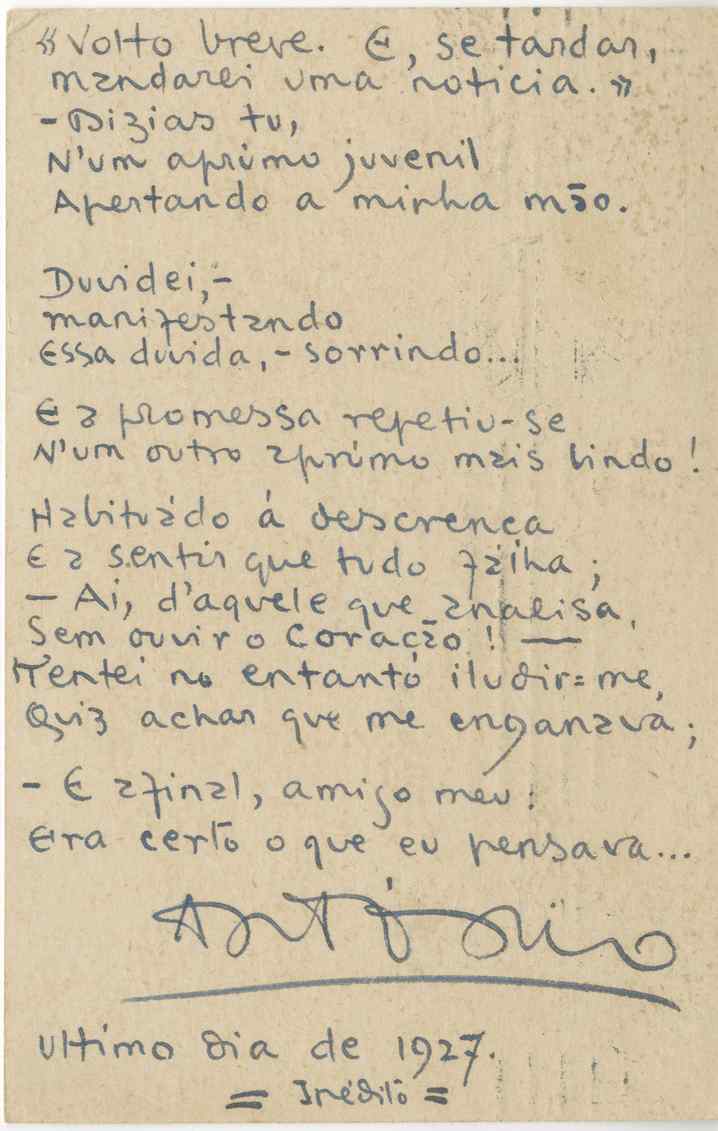 «Volto breve. E, se tardar,
mandarei uma noticia.»
- Dizias tu,
N'um aprumo juvenil
Apertando a minha mão.
Duvidei,-
manifestando
Essa duvida,- sorrindo...
E a promessa repetiu-se
N'um outro aprumo mais lindo!
Habituádo á descrença
E a sentir que tudo fálha;
— Ai, d'aquele que analisa,
Sem ouvir o Coração! —
Tentei no entanto iludir=me,
Quiz achar que me enganava;
- E afinal, amigo meu:
Era certo o que eu pensava...
António
Ultimo dia de 1927.
= Inédito =